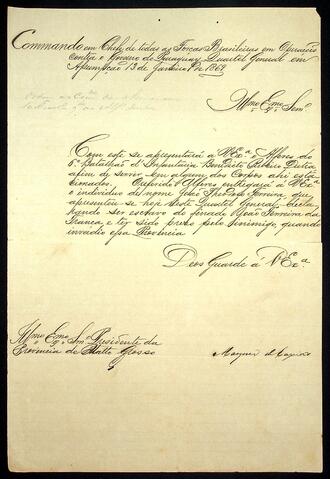 Commando em Chefe de todas as Forças Brasileiras em Operações
contra o Governo do Paraguay, Quartel General em
Assumpção 13 de Janeiro de 1869.
Illmo. Exmo. Senr.
Com este se apresentará á V. Exa. o Alferes do
5o. Batalhão d'Infantaria Bendito Dutra
afim de servir em algum dos Corpos ahi esta
cionados. O referido Alferes entregará á V. Exa.
o individuo de nome João Moreira que
apresentou se hoje neste Quartel General, decla
rando ser escravo do finado João Ferreira da
Franca e ter sido preso pelo inimigo, quando
invadio essa Provincia
Deos Guarde á V. Exa.
Illmo. Exmo. Snr. Presidente da
Provincia de Matto Grosso
Marquez de Caxias